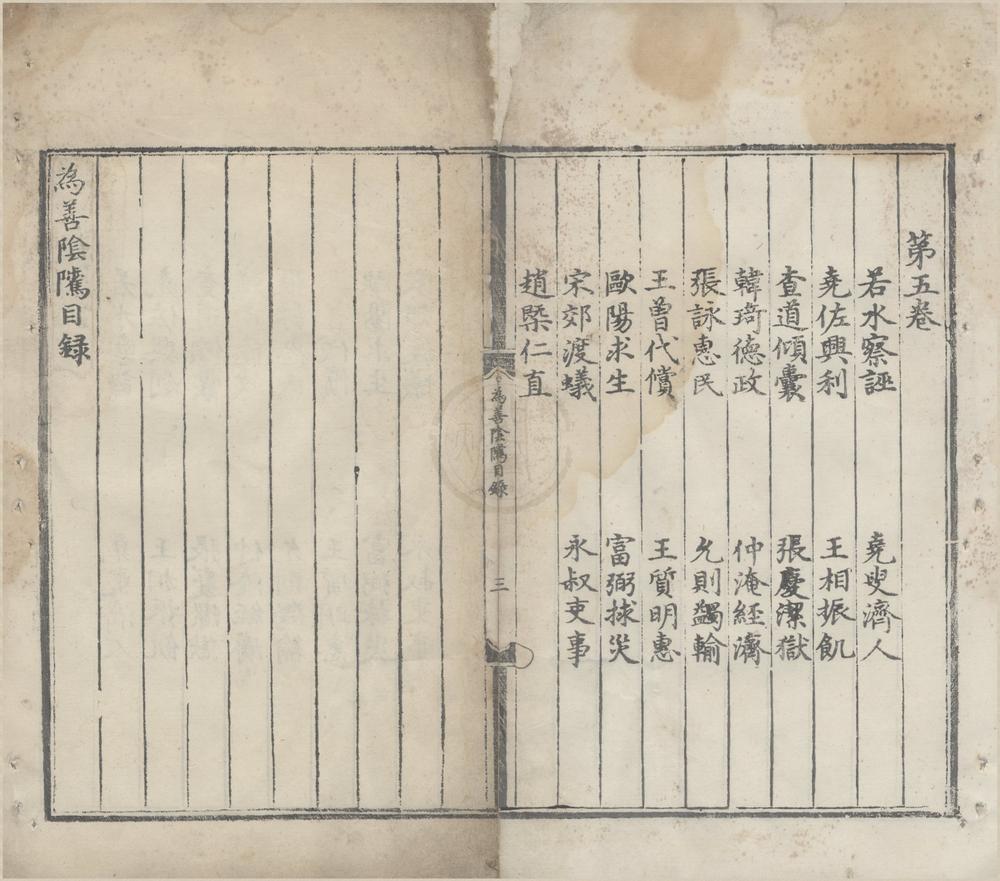 第五卷
若水察誣　堯叟濟人
堯佐興利　王相振飢
查道傾囊　張慶潔獄
韓琦德政　仲淹經濟
張詠惠民　允則蠲輸
王曾代償　王質明惠
歐陽求生　富弼捄災
宋郊渡蟻　永叔吏事
趙槩仁直
為善陰隲目録
三
為善陰隲目録